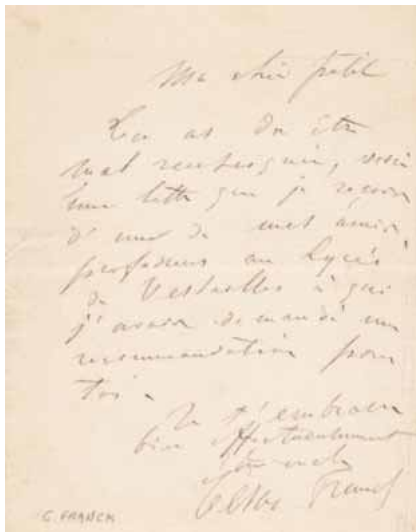 Ma chère petite
Tu as du être
mal renseignée, voici
une lettre que je reçois
d'un de mes amis
professeur au Lycée
de Versailles à qui
j'avais demandé une
recommandation pour
toi.
Je t'embrasse
bien affectueusement
César Franck
C. FRANCK